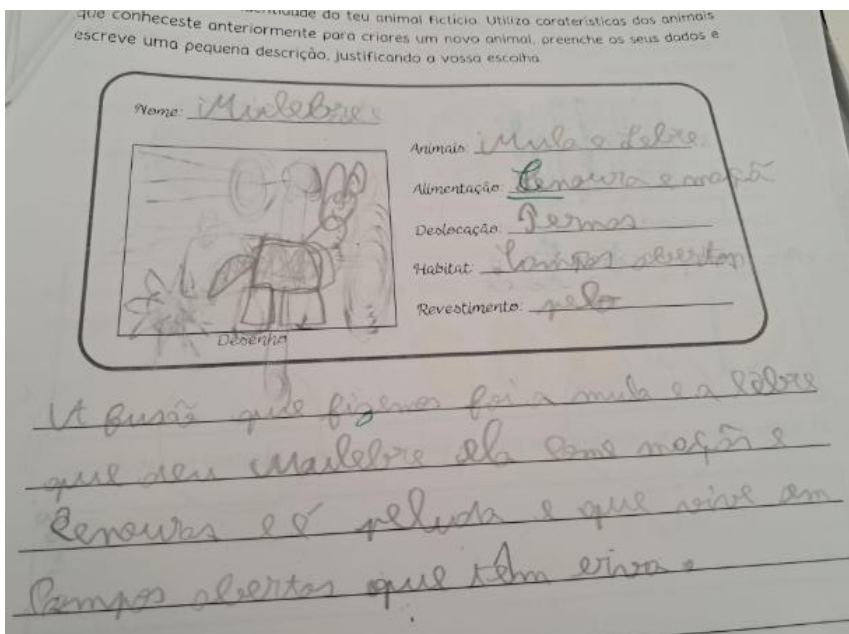 identidade do teu animal fictício. Utiliza caraterísticas dos animais
que conheceste anteriormente para criares um novo animal, preenche os seus dados e
escreve uma pequena descrição, justificando a vossa escolha.
Nome: Mulebre
Animais: Mula e Lebre
Alimentação: Cenoura e maçã
Deslocação: Pernas
Habitat: Campos abertos
Revestimento: pelo
Desenho
A fusão que fizemos foi a mula e a lebre
que deu ela come maçãs e
Cenouras e é peluda e que vive em
Campos abertos que têm erva.